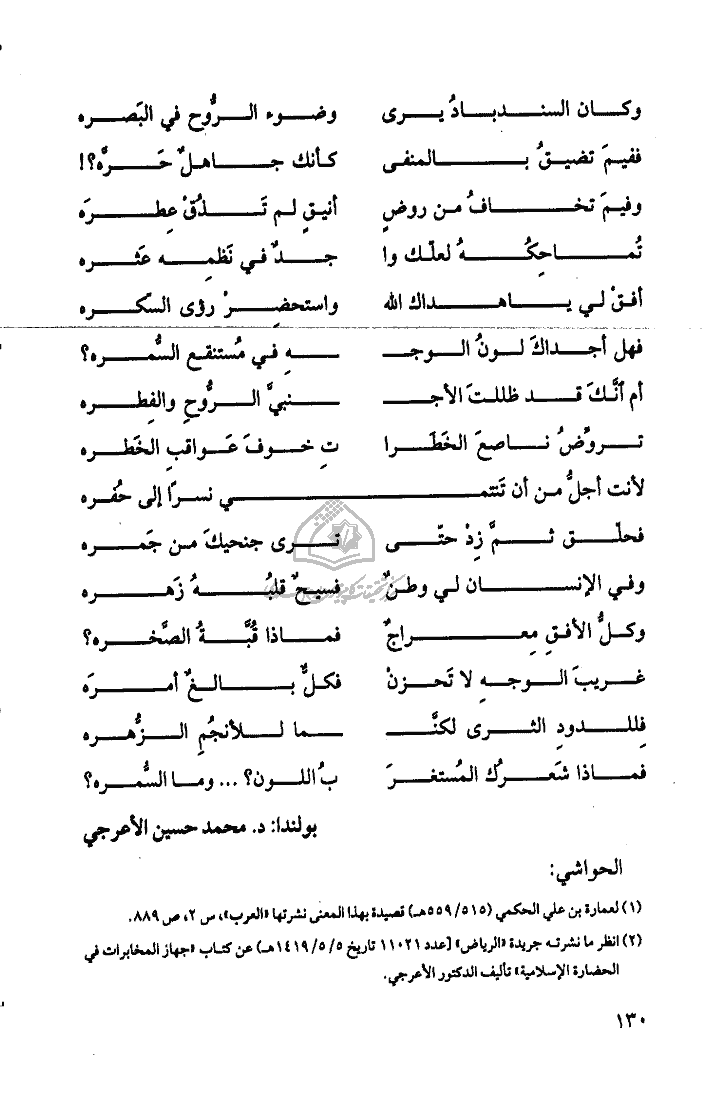 وكان السندبادُ يرى وضوء الرُّوح في البَصره
ففيمَ تضيقُ بالمنفى كأنك جاهلٌ حَرَّه؟!
وفيمَ تخافُ من روضٍ أنيقٍ لم تَذُقْ عِطرَه
تُماحِكُهُ لعلّك وا جدٌ في نَظمِه عَثره
أفقْ لي ياهداك الله واستحضِرْ رؤى السكره
فهل أجداكَ لونُ الوجـ ـهِ في مُستنقع السُّمره؟
أم أنَّكَ قد ظللتَ الأجـ ـنبيَّ الرُّوحِ والفِطره
تروِّضُ ناصعَ الخَطَرا تِ خوفَ عَواقبِ الخَطره
لأنت أجلُّ من أن تَنتمـ ـي نسرًا إلى حُفره
فحلّق ثمَّ زِدْ حتّى ترى جنحيكَ من جَمره
وفي الإنسان لي وطنٌ فسيحٌ قلبُهُ زَهره
وكلُّ الأفقِ مِعراجٌ فماذا قُبَّةُ الصَّخره؟
غريبَ الوجهِ لا تَحزنْ فكلٌّ بالغٌ أمرَه
فِللدودِ الثرى لكنَّـ ـما للأنجُمِ الزُّهره
فماذا شَعرُك المُستغرَ بُ اللون؟ ... وما السُّمره؟
بولندا: د. محمد حسين الأعرجي
الحواشي:
(١) لعمارة بن علي الحكمي (٥١٥/٥٥٩هـ) قصيدة بهذا المعنى نشرتها «العرب»، س ٢، ص ٨٨٩.
(٢) انظر ما نشرته جريدة «الرياض» [عدد ١١٠٢١ تاريخ ١٤١٩/٥/٥هـ) عن كتاب «جهاز المخابرات في
الحضارة الإسلامية» تأليف الدكتور الأعرجي.
١٣٠